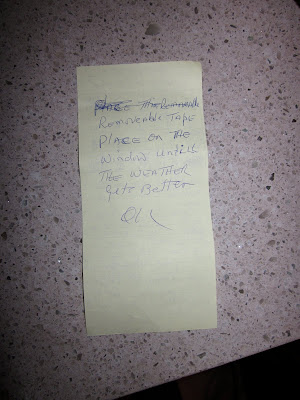 Place The Removable
Removeable Tape
Place on the
Window untill
The Weather
Gets Better